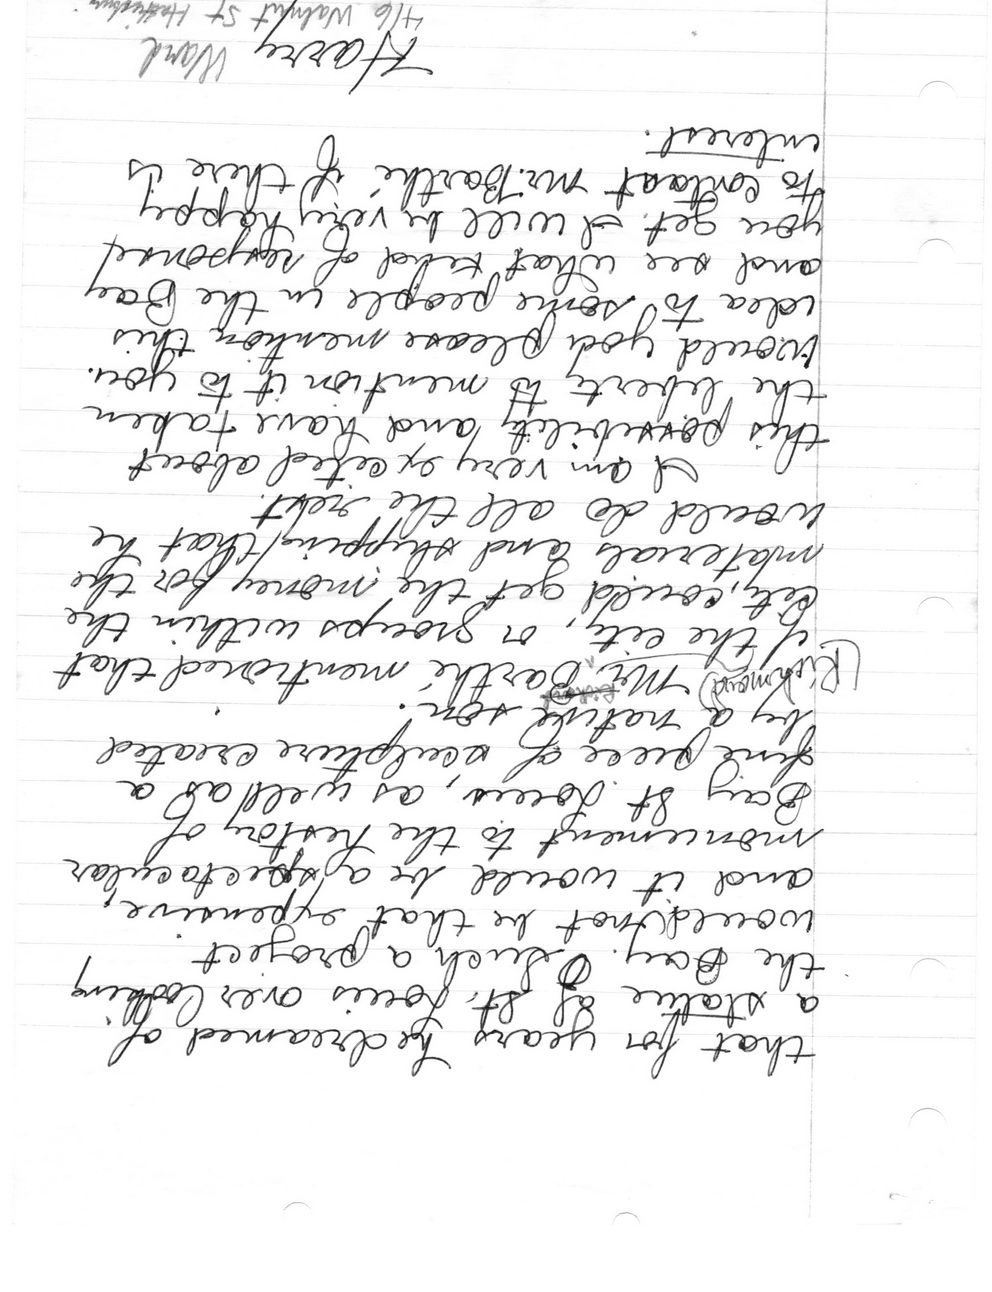 that for years he dreamed of
a statue of St. Louis over looking
the Bay. Such a project
would not be that expensive,
and it would be a spectacular
monument to the history of
Bay St. Louis, as well as a
fine piece of sculpture created
by a native son.
(Richmond) Mr. Barthé mentioned that
if the city, or groups within the
city, could get the money for the
materials and shipping that he
would do all the rest.
I am very excited about
this possibility and have taken
the liberty to mention it to you.
Would you please mention this
idea to some people in the Bay
and see what kind of response
you get. I will be very happy
to contact Mr. Barthé if there is
interest.
Harry Ward
416 Walnut St